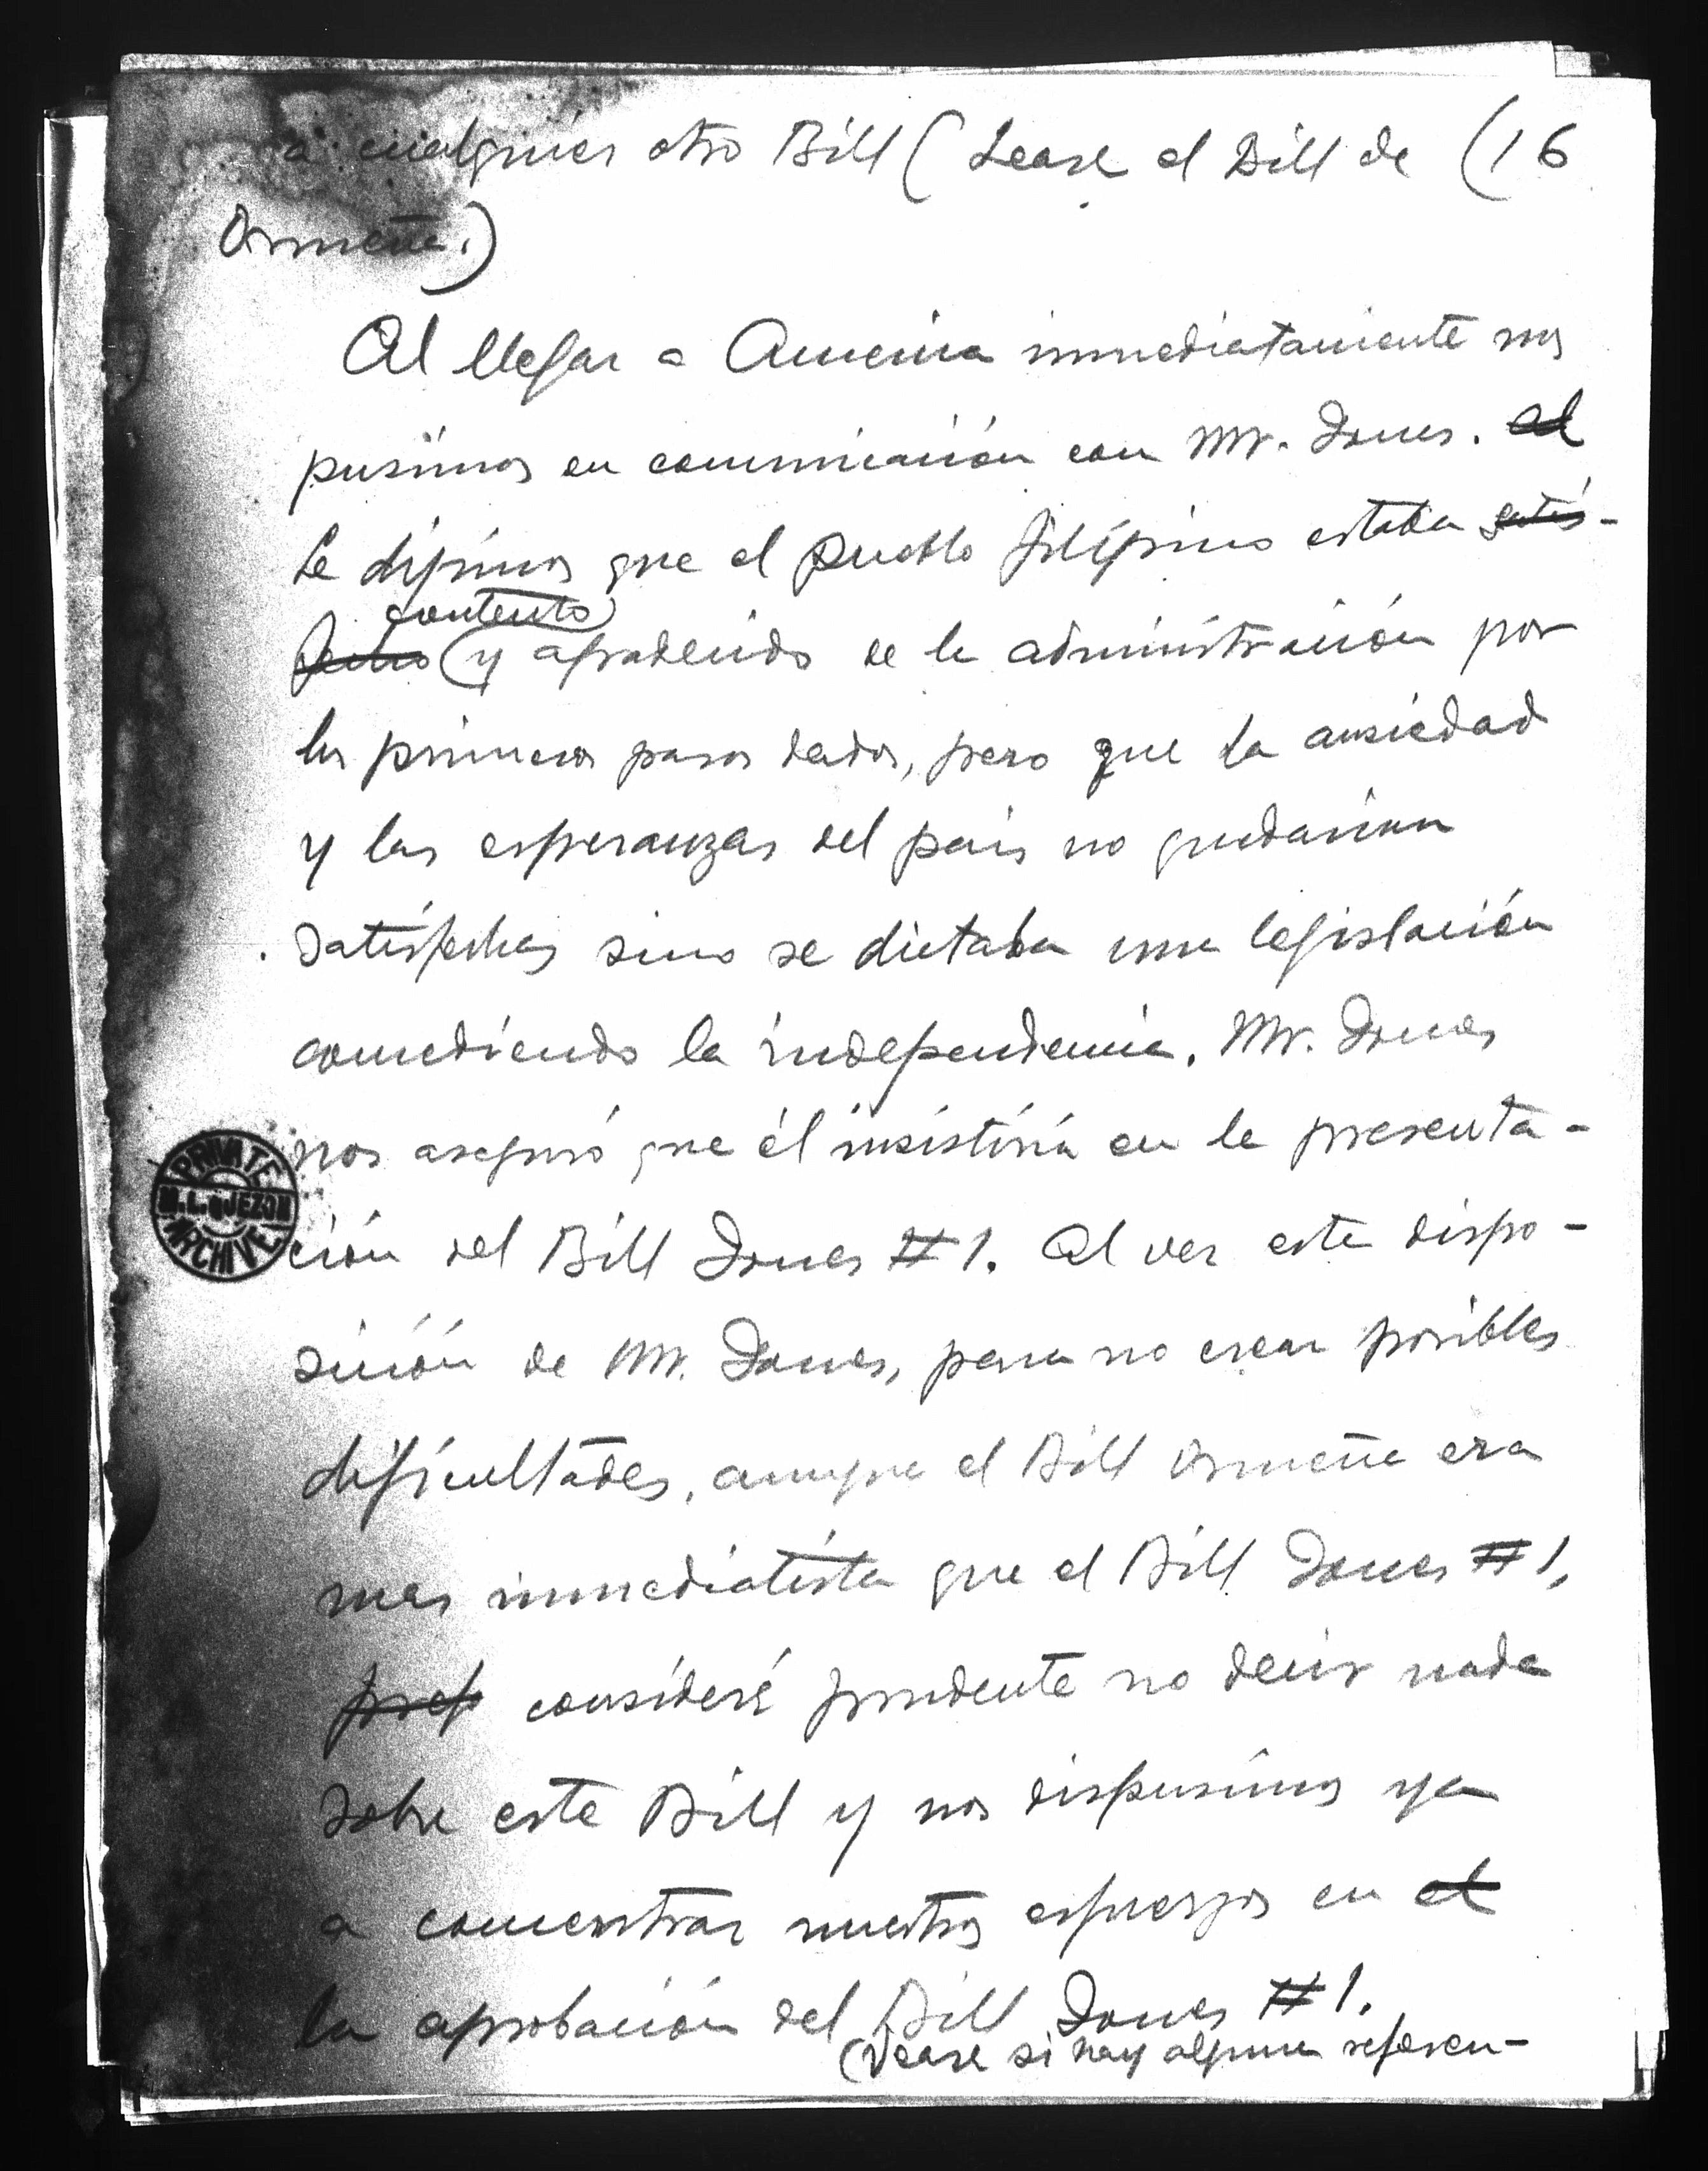 a cualquier otro Bill (Lease el Bill de (16
Ormeña.)
Al llegar a America inmediatamiente nos
pusimos en comunicación con Mr. Jones. al
Le dijimos que el pueblo filipino estaba satis-
contento
fecho (y agradecido de la administración por
los primeros pasos dados, pero que la ansiedad
y las esperanzas del pais no quedarian
satisfechas sino se dictaba una legislación
concediendo la independencia. Mr. Jones
nos aseguró que él insistiria en la presenta-
ción del Bill Jones #1. Al ver esta dispo-
sición de Mr. Jones, para no crear posibles
dificultades, aunque el Bill Ormeña era
mas inmediatista que el Bill Jones #1,
pref consideré prudente no decir nada
sobre este Bill y nos dispusimos ya
a concentrar nuestros esfuerzos en el
la aprobación del Bill Jones #1.
(Vease si hay alguna referen-
PRIVATE
M.L. QUEZON
ARCHIVE